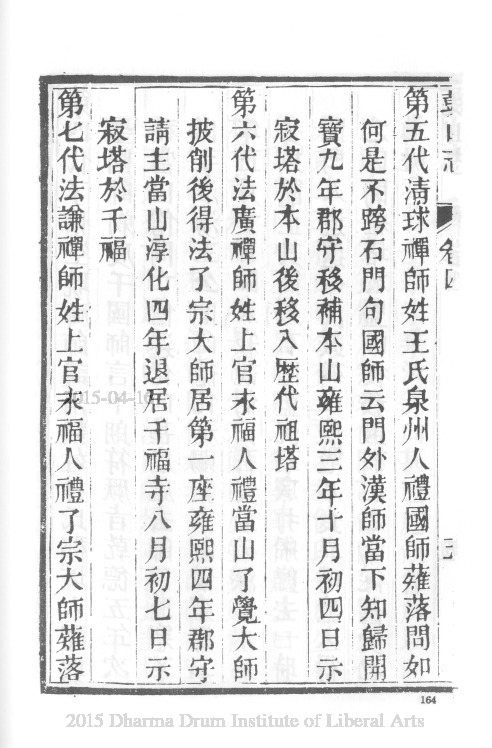 鼓山志 卷四
第五代清球禪師姓王氏泉州人禮國師薙落問如
何是不跨石門句國師云門外漢師當下知歸開
寶九年郡守移補本山雍熙三年十月初四日示
寂塔於本山後移入歷代祖塔
第六代法廣禪師姓上官永福人禮當山了覺大師
披削後得法了宗大師居第一座雍熙四年郡守
請主當山淳化四年退居千福寺八月初七日示
寂塔於千福
第七代法謙禪師姓上官永福人禮了宗大師薙落
2015-04-10
164
2015 Dharma Drum Institute of Liberal Arts